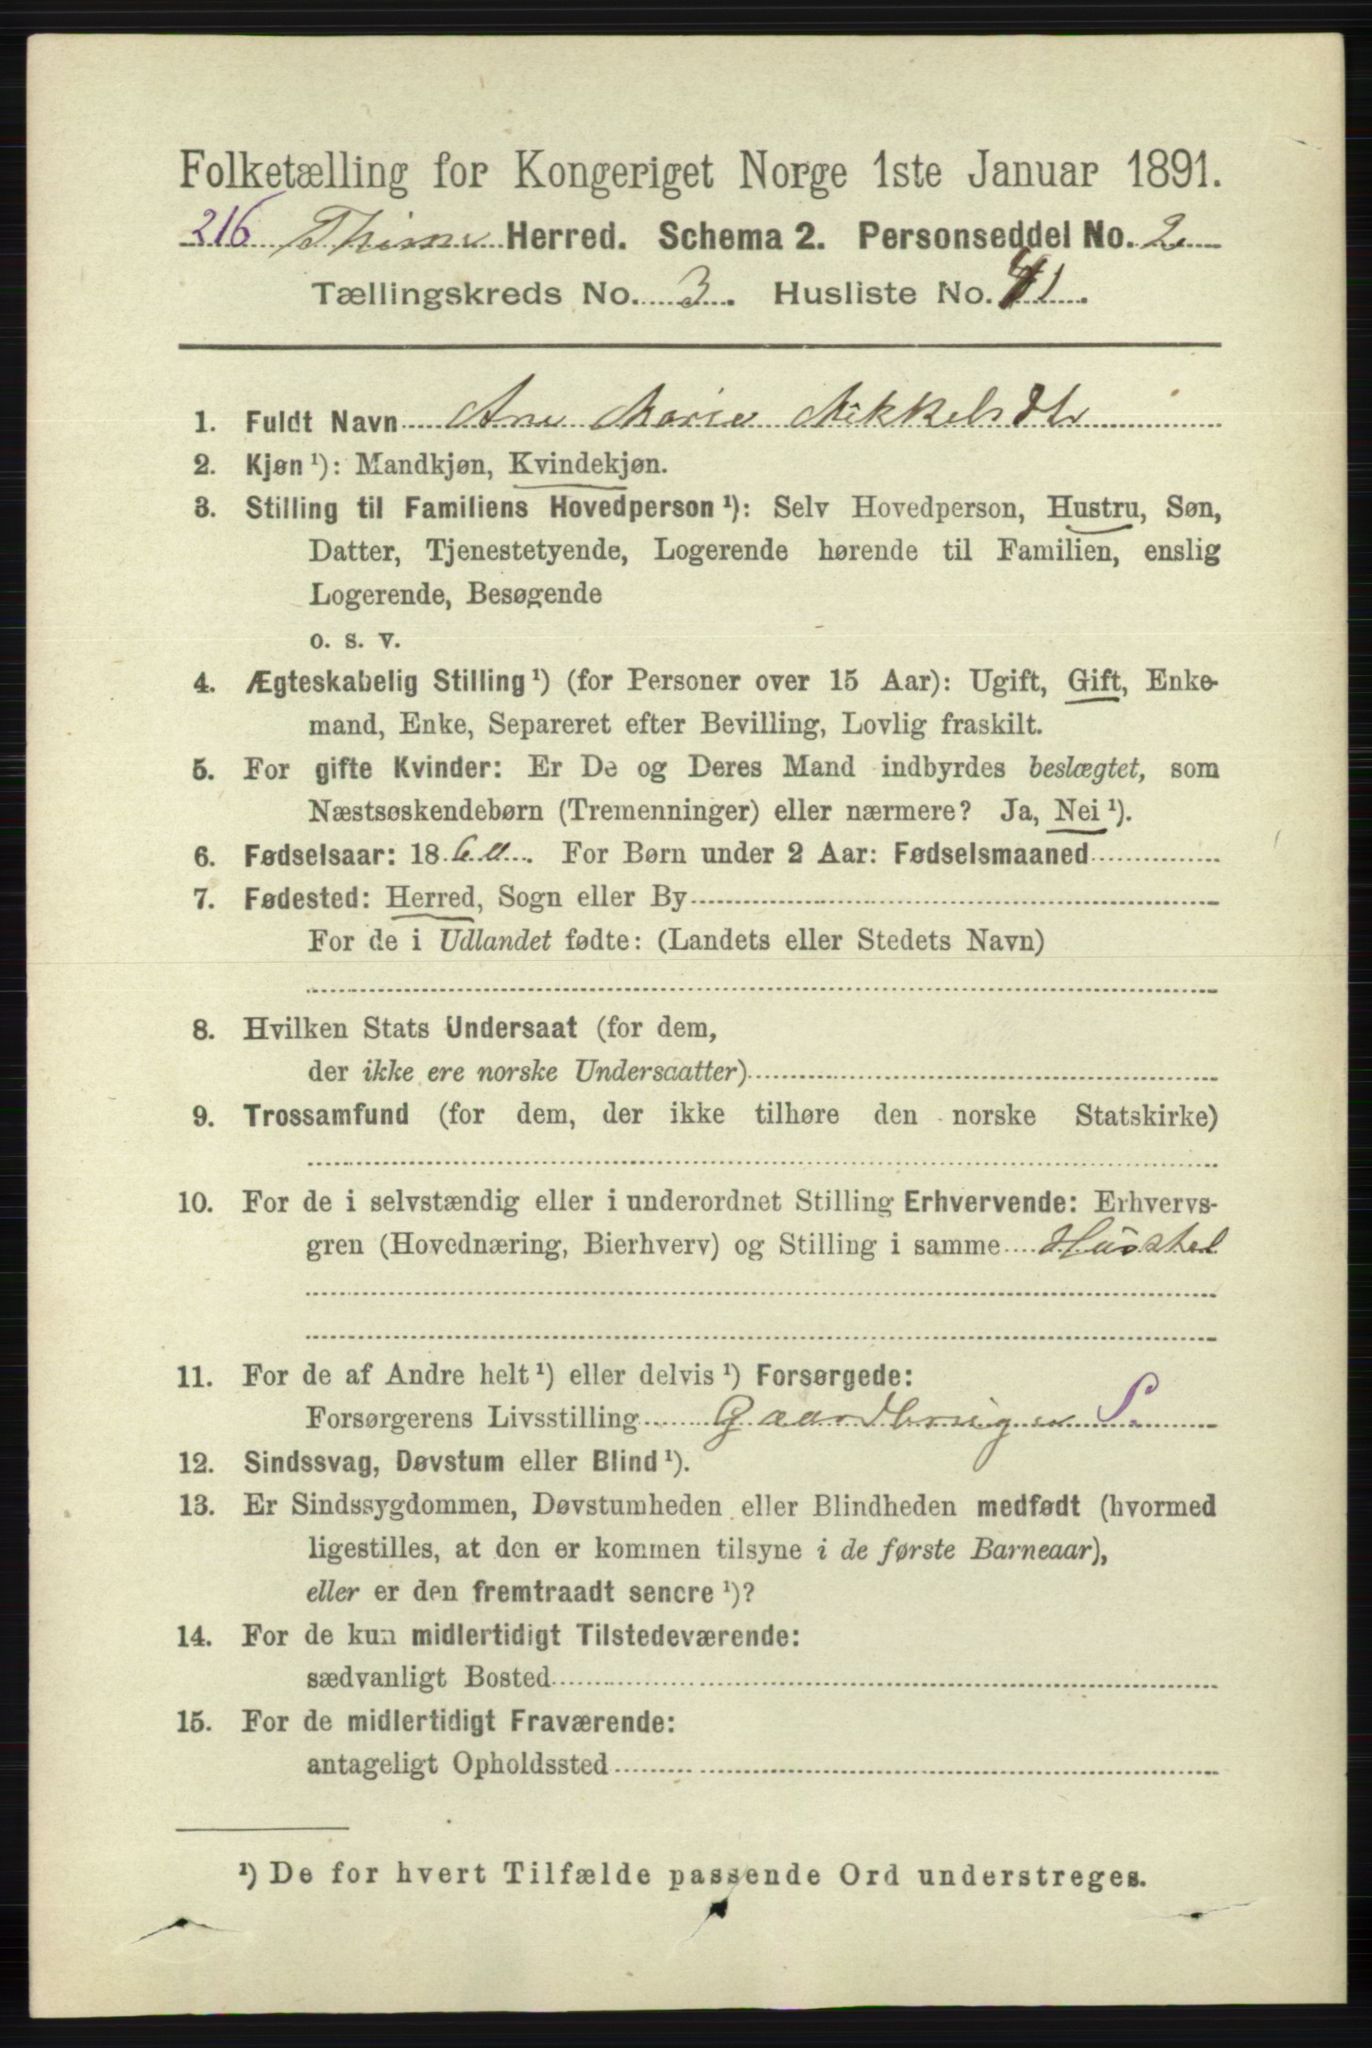 Folketælling for Kongeriget Norge 1ste Januar 1891.
216 Thime Herred. Schema 2. Personseddel No. 2
Tællingskreds No. 3. Husliste No. 41.
1. Fuldt Navn Ane Marie Mikkelsdtr
2. Kjøn ¹): Mandkjøn, Kvindekjøn.
3. Stilling til Familiens Hovedperson ¹): Selv Hovedperson, Hustru, Søn,
Datter, Tjenestetyende, Logerende hørende til Familien, enslig
Logerende, Besøgende
o. s. v.
4. Ægteskabelig Stilling ¹) (for Personer over 15 Aar): Ugift, Gift, Enke-
mand, Enke, Separeret efter Bevilling, Lovlig fraskilt.
5. For gifte Kvinder: Er De og Deres Mand indbyrdes beslægtet, som
Næstsøskendebørn (Tremenninger) eller nærmere? Ja, Nei ¹).
6. Fødselsaar: 1860. For Børn under 2 Aar: Fødselsmaaned
7. Fødested: Herred, Sogn eller By
For de i Udlandet fødte: (Landets eller Stedets Navn)
8. Hvilken Stats Undersaat (for dem,
der ikke ere norske Undersaatter)
9. Trossamfund (for dem, der ikke tilhøre den norske Statskirke)
10. For de i selvstændig eller i underordnet Stilling Erhvervende: Erhvervs-
gren (Hovednæring, Bierhverv) og Stilling i samme Husstel
11. For de af Andre helt ¹) eller delvis ¹) Forsørgede:
Forsørgerens Livsstilling Gaardbruger S.
12. Sindssvag, Døvstum eller Blind ¹).
13. Er Sindssygdommen, Døvstumheden eller Blindheden medfødt (hvormed
ligestilles, at den er kommen tilsyne i de første Barneaar),
eller er den fremtraadt senere ¹)?
14. For de kun midlertidigt Tilstedeværende:
sædvanligt Bosted
15. For de midlertidigt Fraværende:
antageligt Opholdssted
¹) De for hvert Tilfælde passende Ord understreges.